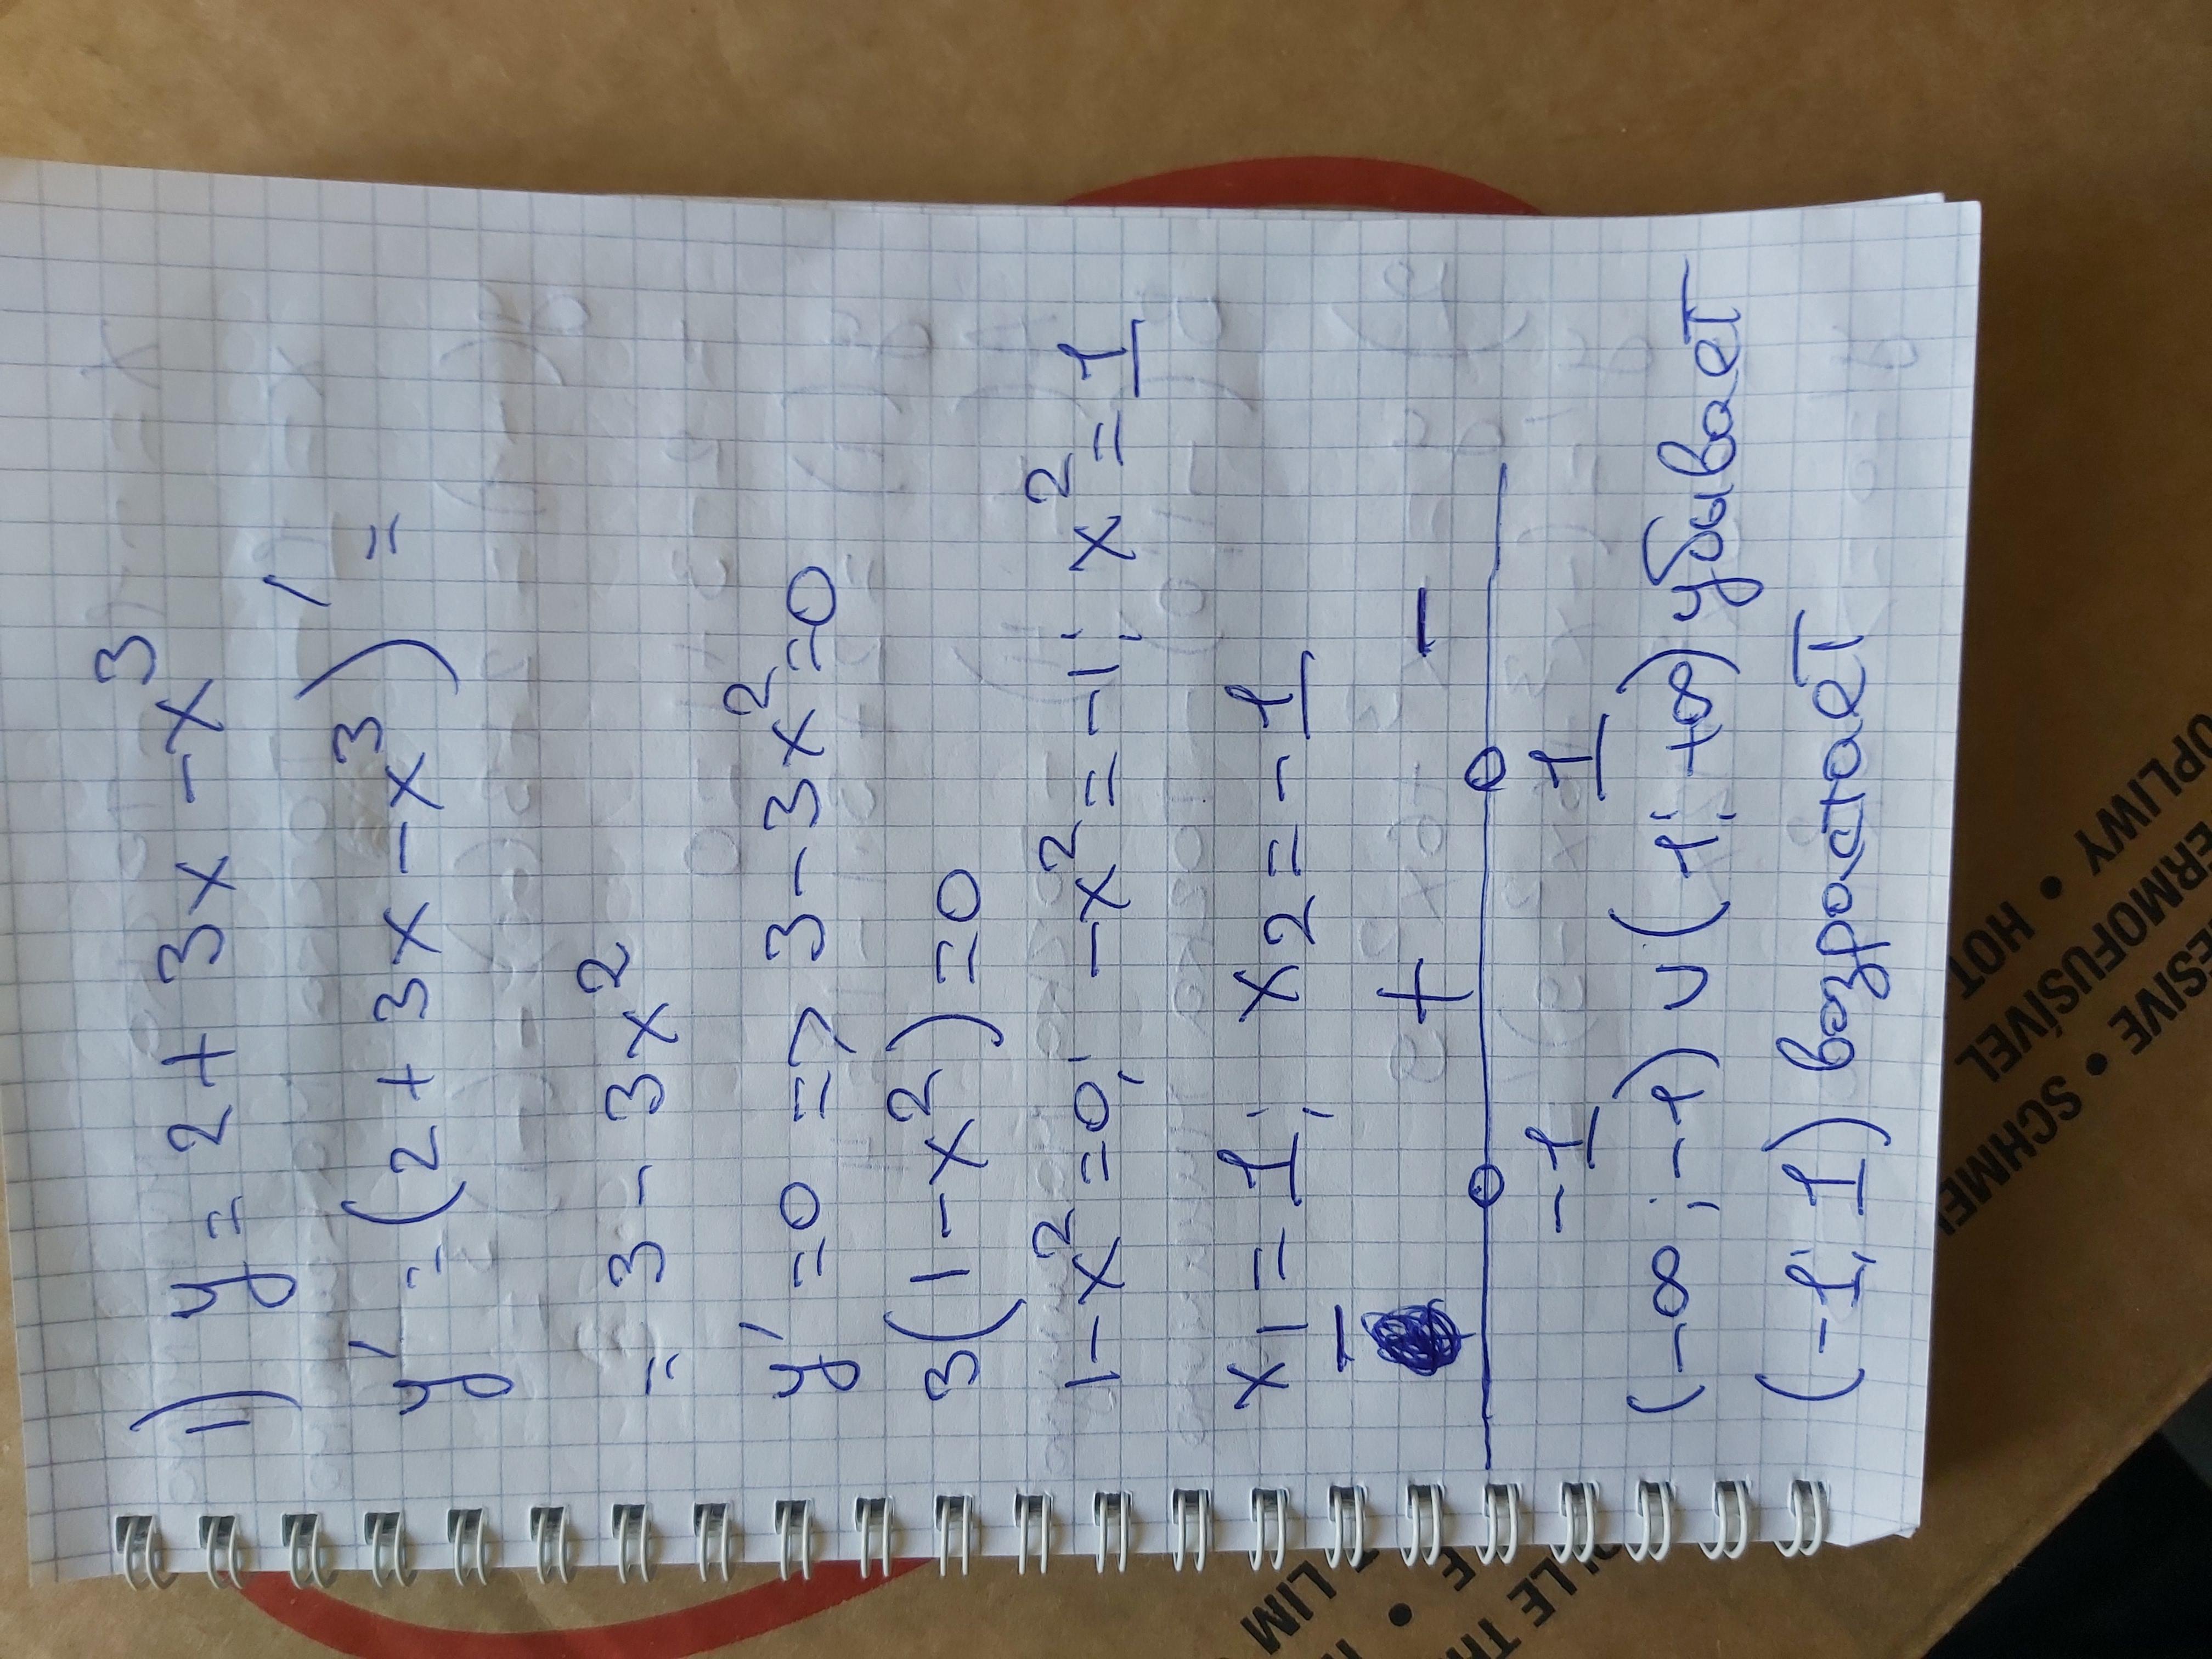 1) y = 2 + 3x - x³
y' = (2 + 3x - x³)' =
= 3 - 3x²
y' = 0 => 3 - 3x² = 0
3(1 - x²) = 0
1 - x² = 0; -x² = -1; x² = 1
x1 = 1; x2 = -1
- + -
-1 1
(-∞; -1) ∪ (1; +∞) убывает
(-1; 1) возрастает
UPLIWY
ERMOFUSÍVEL • HOT
ESIVE • SCHMEL